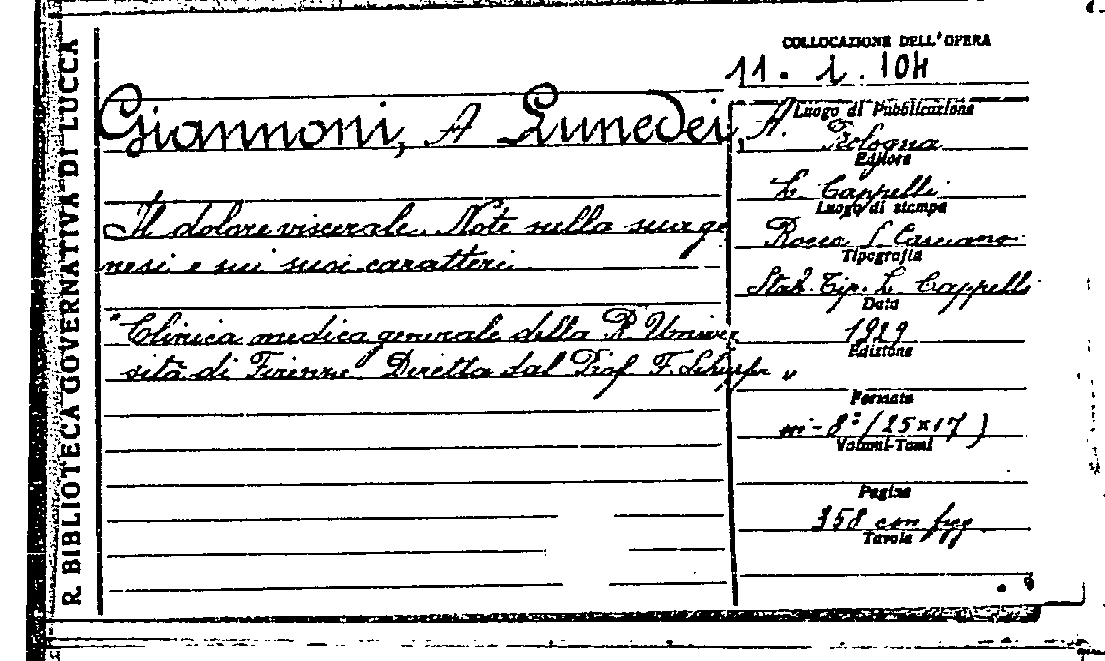 R. BIBLIOTECA GOVERNATIVA DI LUCCA
COLLOCAZIONE DELL'OPERA
11. 1. 104
Giannoni, A Lunedei, A.
Il dolore viscerale. Note sulla sua ge
nesi e sui suoi caratteri
"Clinica medica generale della R. Univer
sità di Firenze Diretta dal Prof. F. Schupfer"
Luogo di Pubblicazione
Bologna
Editore
L. Cappelli
Luogo di stampa
Rocca S. Casciano
Tipografia
Stab. Tip. L. Cappelli
Data
1929
Edizione
Formato
in-8° (25x17)
Volumi-Tomi
Pagine
358 con fig.
Tavole